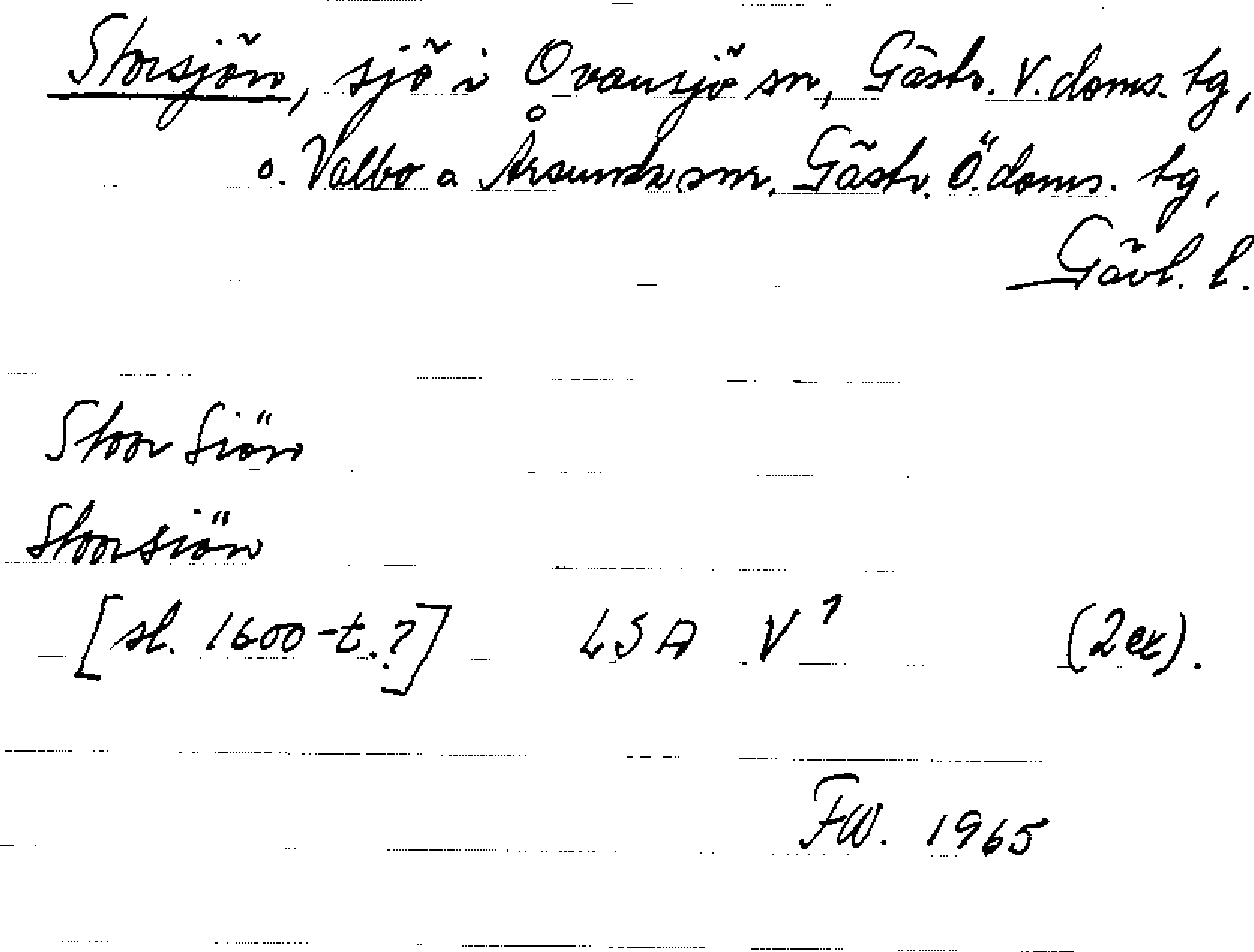 Storsjön, sjö i Ovansjö sn, Gästr. V. doms. tg,
o. Valbo o Årsunda snr, Gästr. Ö. doms. tg,
Gävl. l.
Stoor Siön
Stoorsiön
[sl. 1600-t.?] LSA V¹ (2 ex).
FW. 1965